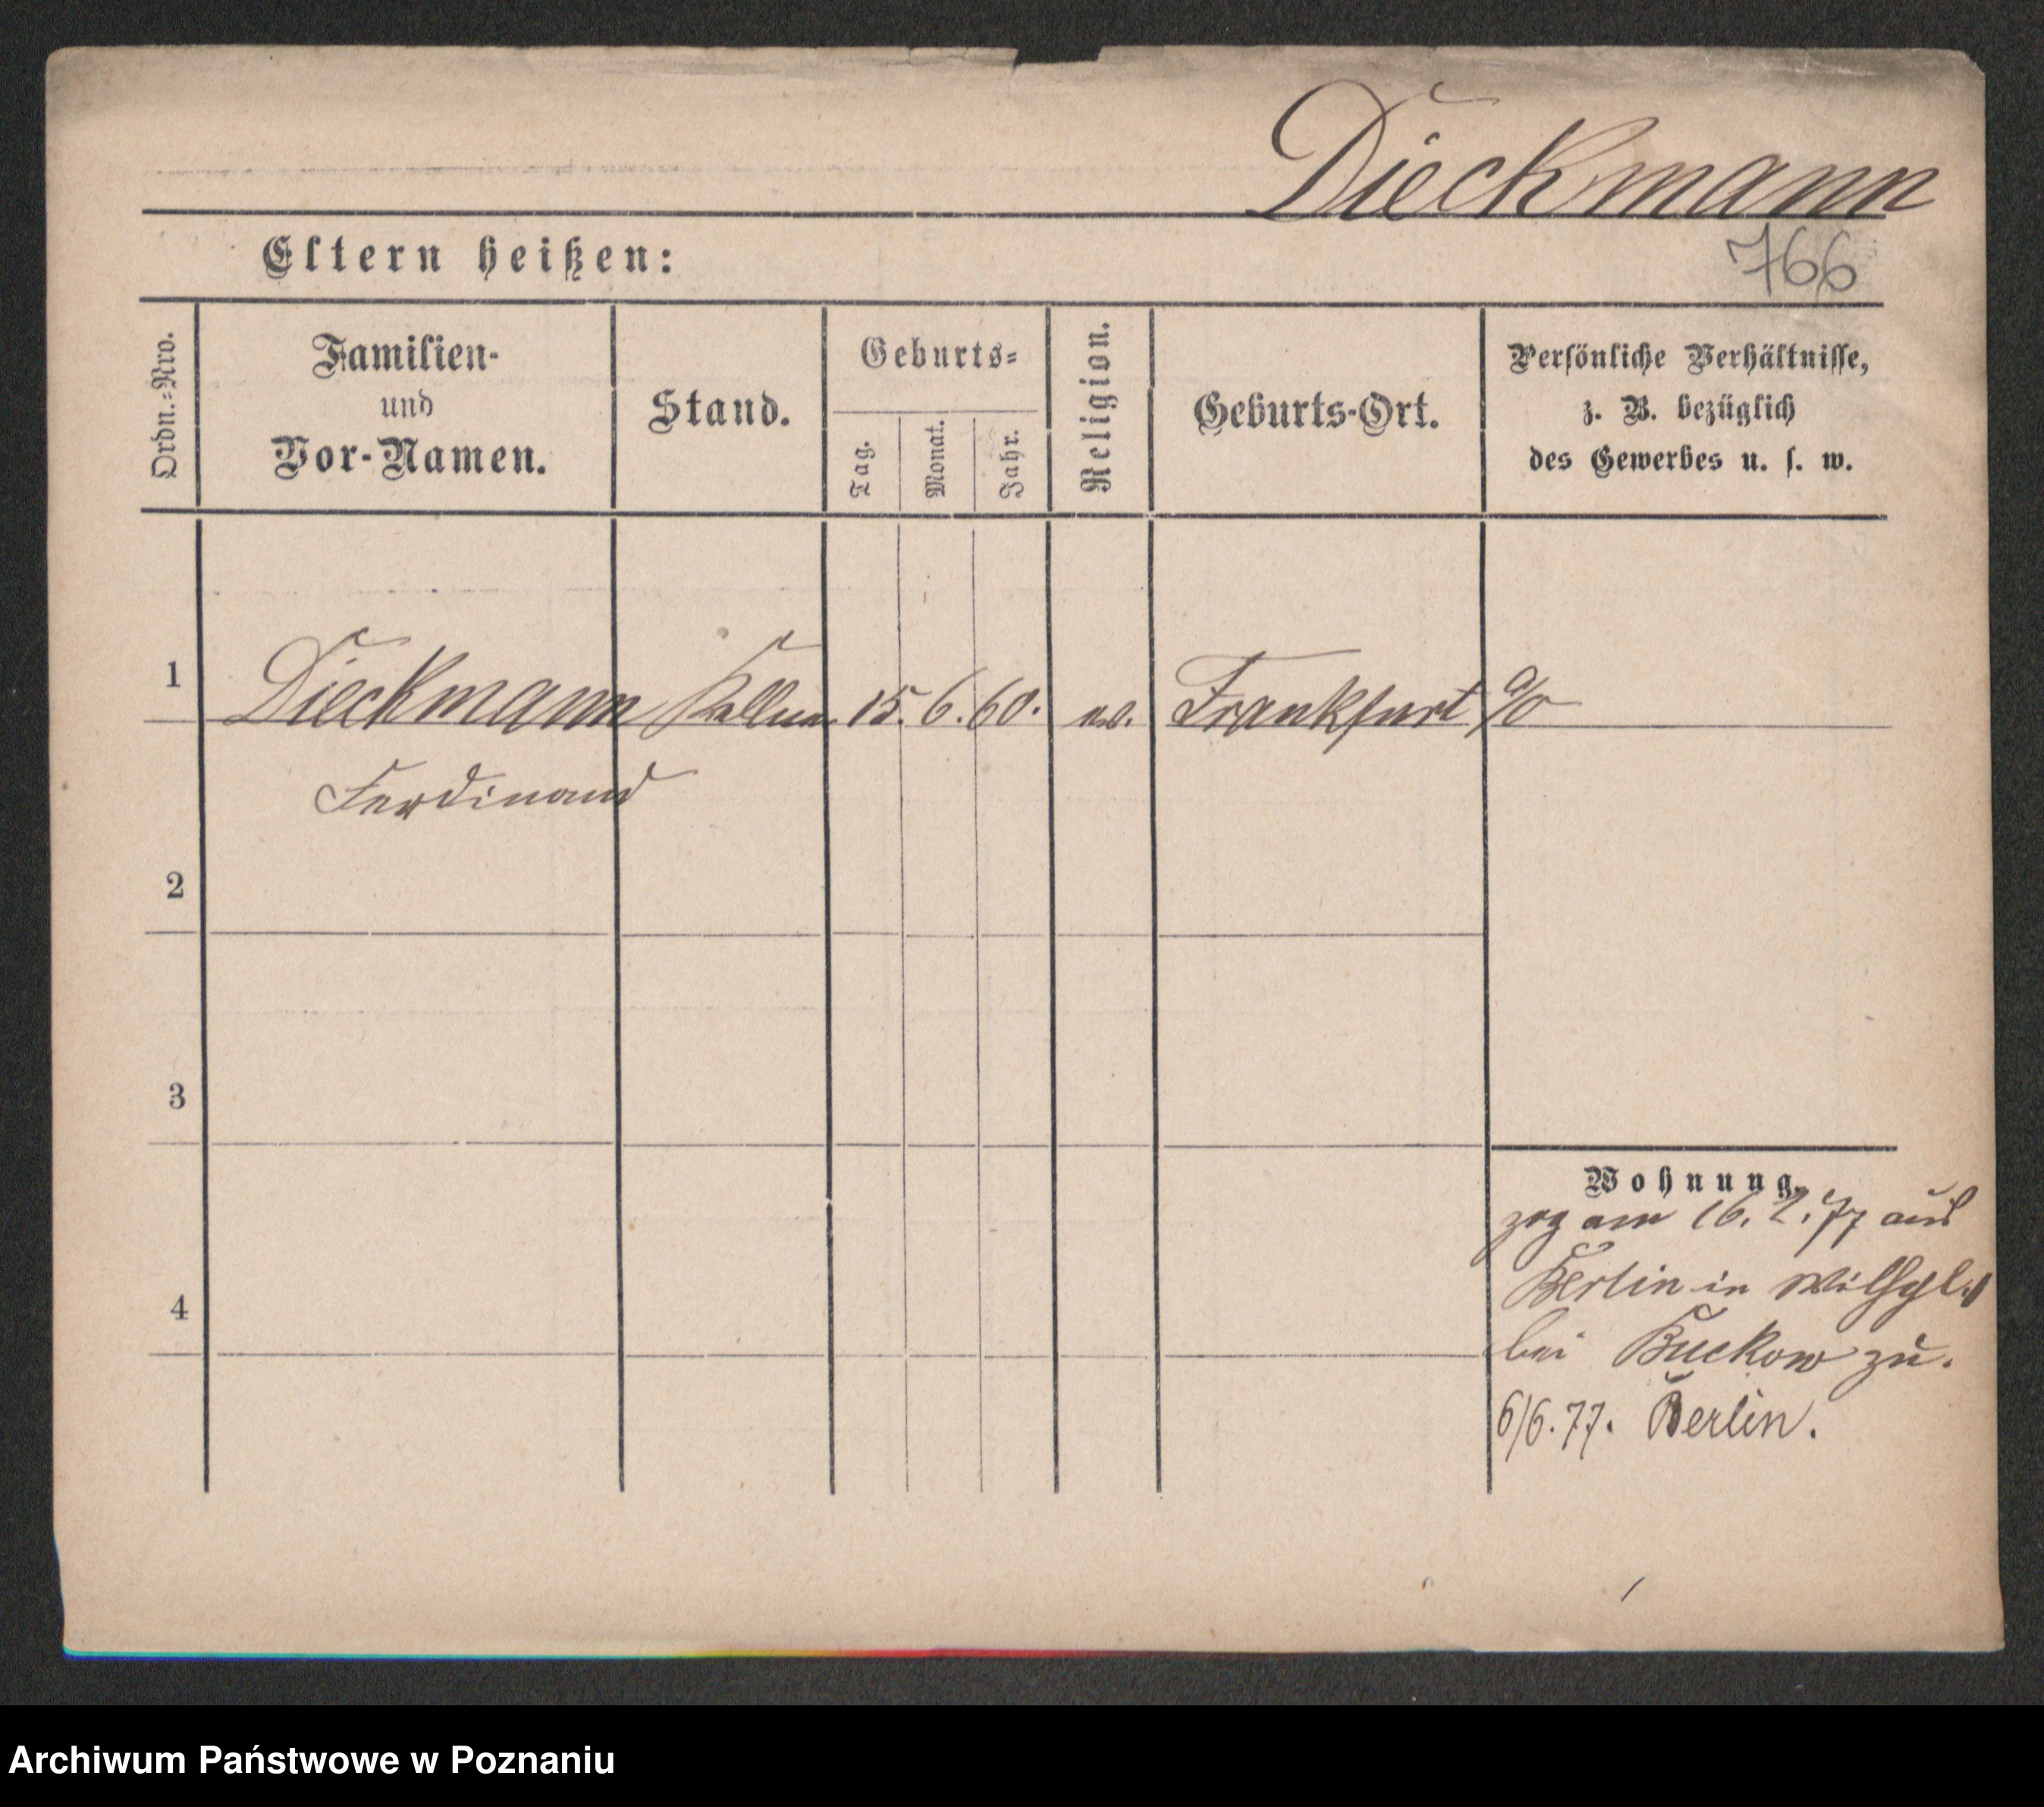 Dieckmann
Eltern heißen:
766
Ordn.-Nro.
Familien-
und
Vor-Namen.
Stand.
Geburts-
Tag.
Monat.
Jahr.
Religion.
Geburts-Ort.
Persönliche Verhältnisse,
z. B. bezüglich
des Gewerbes u. s. w.
1
Dieckmann Kellner 15. 6. 60. ev. Frankfurt a/o
Ferdinand
2
3
Wohnung.
zog am 16. 2. 77 aus
Berlin in
4
bei Buckow zu.
6/6. 77. Berlin.
Archiwum Państwowe w Poznaniu